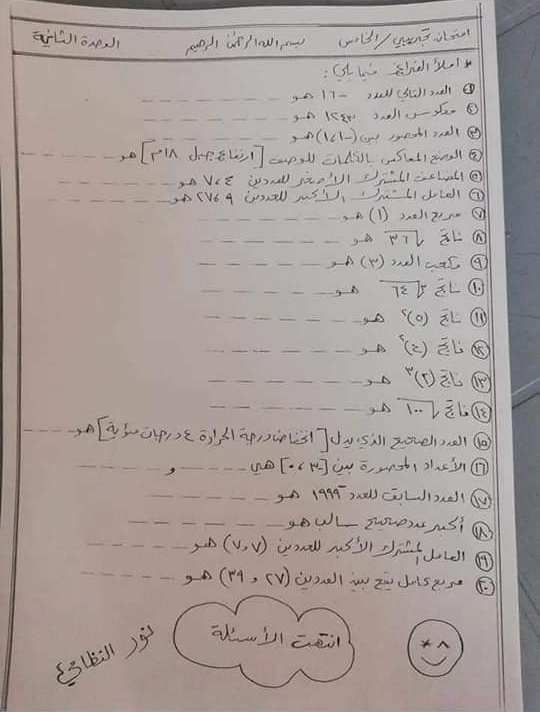 امتحان تجريبي / الخامس بسم الله الرحمن الرحيم الوحدة الثانية
* املأ الفراغ فيما يلي :
١) العدد التالي للعدد -١٦ هو
٢) معكوس العدد ١٢٤٣ هو
٣) العدد المحصور بين (-١،١) هو
٤) الوضع المعاكس بالكلمات للوصف [ارتفاع جبل ١٨م] هو
٥) المضاعف المشترك الأصغر للعددين ٤ ، ٧ هو
٦) العامل المشترك الأكبر للعددين ٩ ، ٢٧ هو
٧) مربع العدد (١) هو
٨) ناتج √٣٦ هو
٩) مكعب العدد (٣) هو
١٠) ناتج ∛٦٤ هو
١١) ناتج (٥)² هو
١٢) ناتج (٤)² هو
١٣) ناتج (٢)³ هو
١٤) ناتج √١٠٠ هو
١٥) العدد الصحيح الذي يدل [انخفاض درجة الحرارة ٤ درجات مئوية] هو
١٦) الأعداد المحصورة بين [٣ ، ٠] هي و
١٧) العدد السابق للعدد -١٩٩٩ هو
١٨) أكبر عدد صحيح سالب هو
١٩) العامل المشترك الأكبر للعددين (٧ و ٧) هو
٢٠) مربع كامل يقع بين العددين (٢٧ و ٣٩) هو
انتهت الأسئلة
نور النظامي